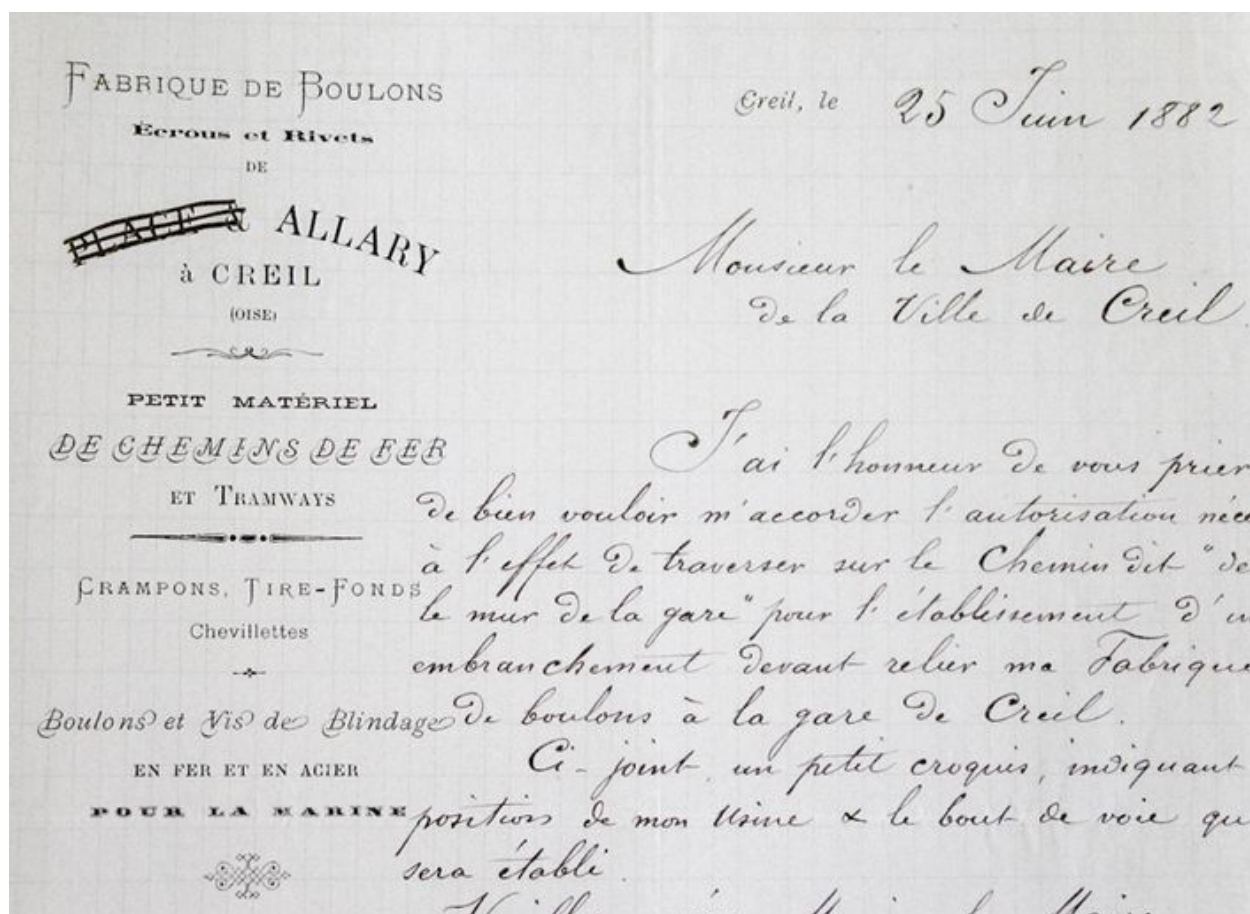 FABRIQUE DE BOULONS
Écrous et Rivets
DE
PLACE & ALLARY
à CREIL
(OISE)
PETIT MATÉRIEL
DE CHEMINS DE FER
ET TRAMWAYS
CRAMPONS, TIRE-FONDS
Chevillettes
Boulons et Vis de Blindage
EN FER ET EN ACIER
POUR LA MARINE
Creil, le 25 Juin 1882
Monsieur le Maire
de la Ville de Creil
J'ai l'honneur de vous prier
de bien vouloir m'accorder l'autorisation néce
à l'effet de traverser sur le Chemin dit "de
le mur de la gare" pour l'établissement d'u
embranchement devant relier ma Fabrique
de boulons à la gare de Creil.
Ci-joint, un petit croquis, indiquant
position de mon Usine & le bout de voie qu
sera établi.